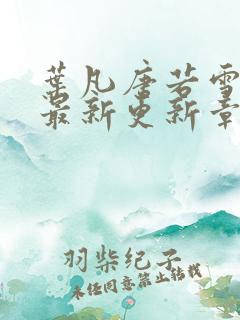 葉凡唐若雪
最新更新章
羽柴纪子
未经同意禁止转载